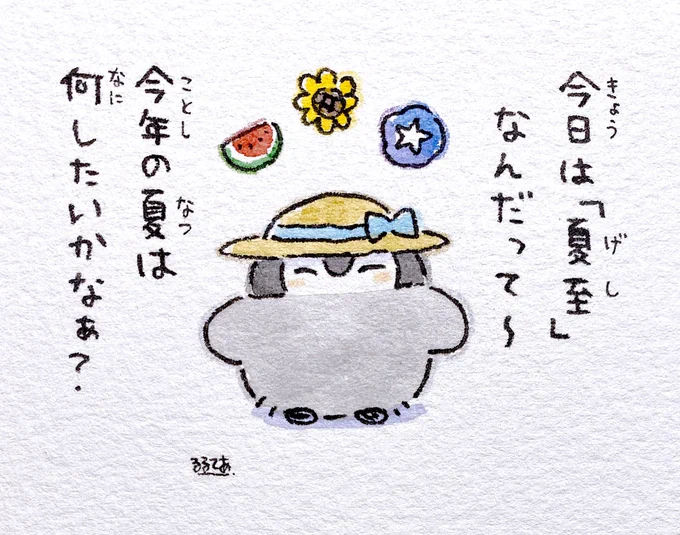 今日は「夏至」
なんだって～
今年の夏は
何したいかなぁ？
きょう
げし
ことし
なつ
なに
るるてあ